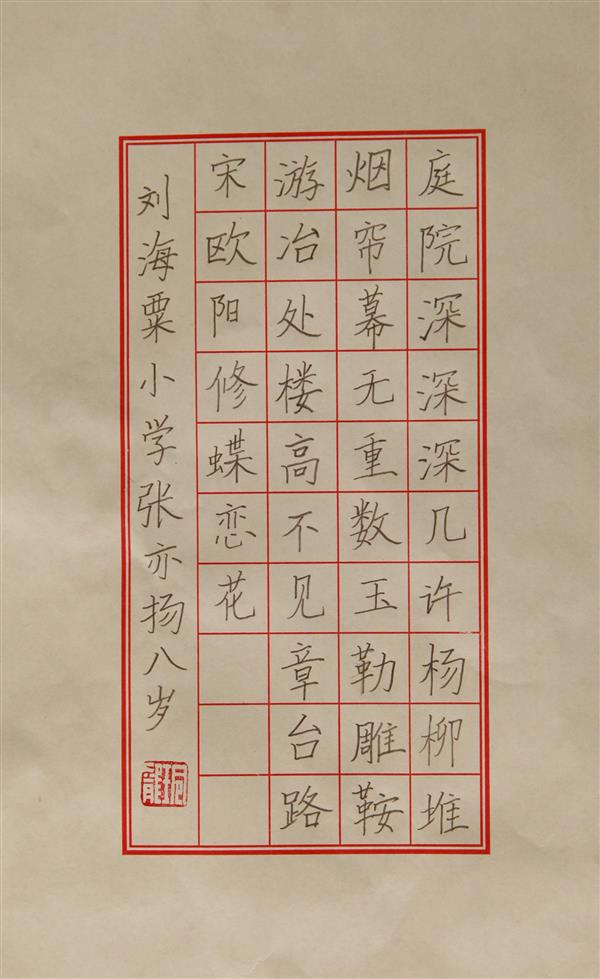 庭院深深深几许杨柳堆
烟帘幕无重数玉勒雕鞍
游冶处楼高不见章台路
宋欧阳修蝶恋花
刘海粟小学张亦扬八岁